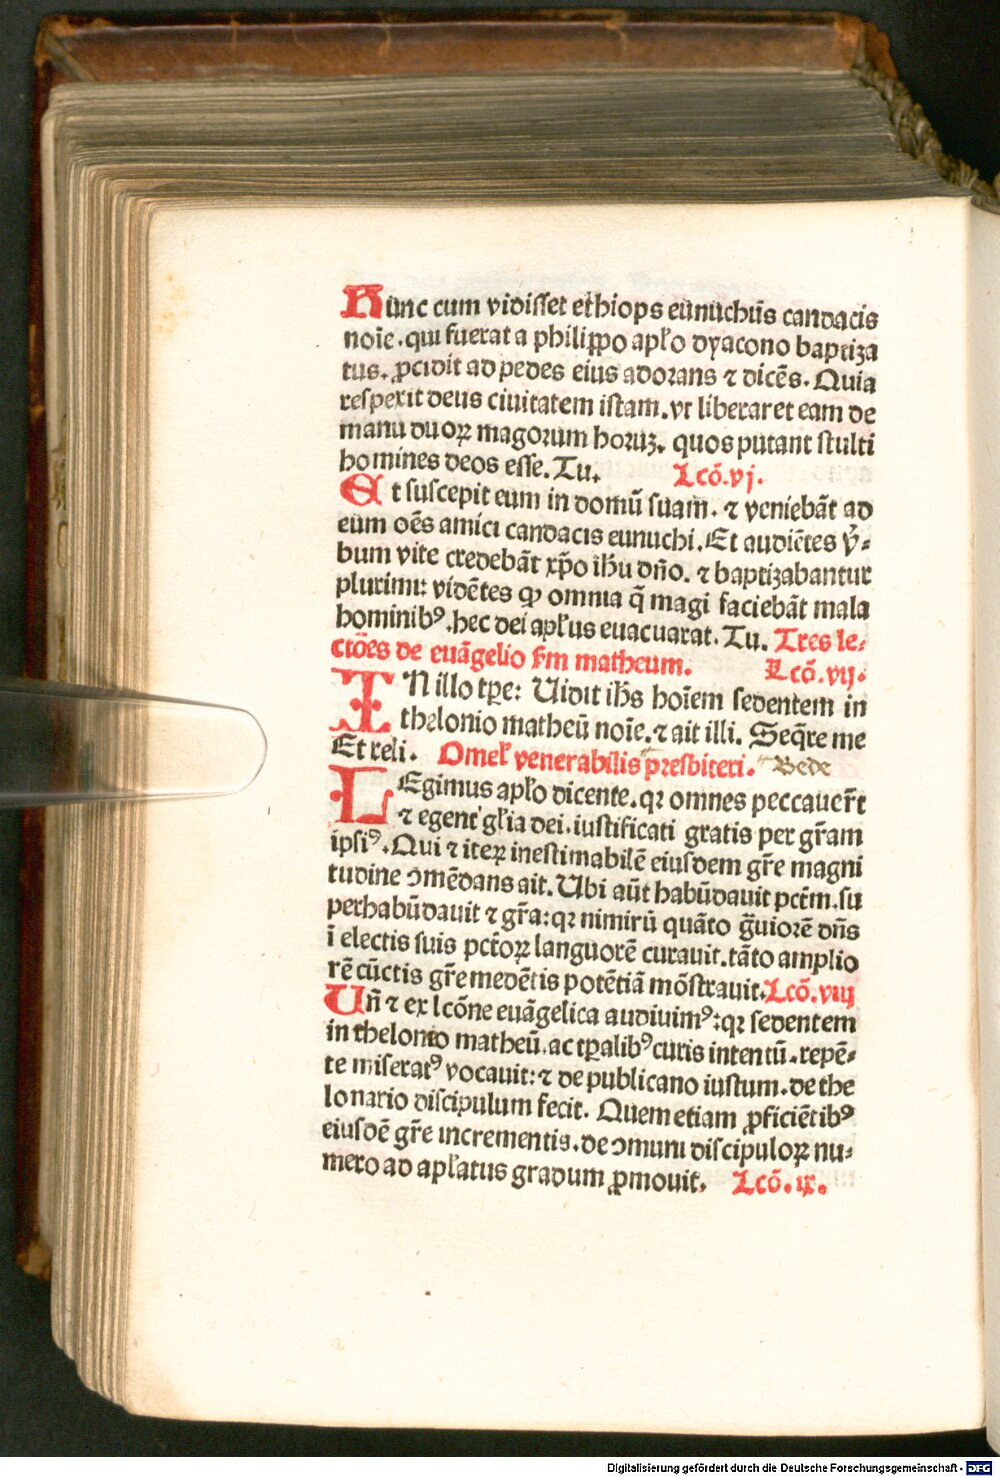 Hunc cum vidisset ethiops eunuchũs candacis
noīe. qui fuerat a philippo apło dyacono baptiza
tus. ꝓcidit ad pedes eius adorans ⁊ dicēs. Quia
respexit deus ciuitatem istam. vt liberaret eam de
manu duoꝝ magorum horuꝫ. quos putant stulti
homines deos esse. Tu. Lcō. vj.
Et suscepit eum in domū suam. ⁊ veniebāt ad
eum oēs amici candacis eunuchi. Et audiētes v̓⸗
bum vite credebāt xp̄o ihū dño. ⁊ baptizabantur
plurimi: vidētes ꝙ omnia q̄ magi faciebāt mala
hominibꝰ. hec dei apłus euacuarat. Tu. Tres le⸗
ctiōes de euāgelio ẜm matheum. Lcō. vij.
IN illo tꝑe: Uidit ihs̄ hoīem sedentem in
thelonio matheū noīe. ⁊ ait illi. Seqr̄e me
Et reli. Omeł venerabilis presbiteri. Bede
LEgimus apło dicente. qꝛ omnes peccauer̄t
⁊ egent gľia dei. iustificati gratis per gr̄am
ipsiꝰ. Qui ⁊ iteꝝ inestimabilē eiusdem gr̄e magni
tudine ꝯmēdans ait. Ubi aūt habūdauit pctm̄. su
perhabūdauit ⁊ gr̄a: qꝛ nimirū quāto g̈uiorē dñs
ī electis suis pctōꝝ languorē curauit. tāto amplio
rē cūctis gr̄e medētis potētiā mōstrauit. Lcō. viij
Uñ ⁊ ex lcōne euāgelica audiuimꝰ: qꝛ sedentem
in thelonio matheū. ac tꝑalibꝰ curis intentū. repē⸗
te miseratꝰ vocauit: ⁊ de publicano iustum. de the
lonario discipulum fecit. Quem etiam ꝓficiētibꝰ
eiusdē gr̄e incrementis. de ꝯmuni discipuloꝝ nu⸗
mero ad apłatus gradum ꝓmouit. Lcō. ix.
Digitalisierung gefördert durch die Deutsche Forschungsgemeinschaft - DFG